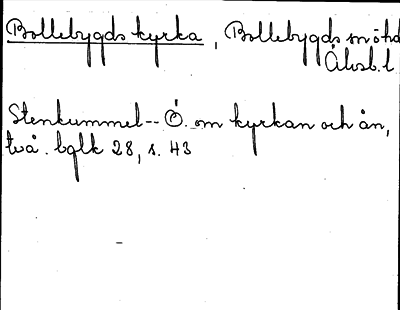 Bollebygds kyrka, Bollebygds sn o hd
Älvsb. l
Stenkummel -- Ö. om kyrkan och ån,
två. bglk 28, s. 43